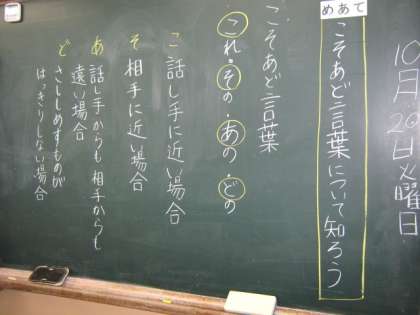 10月20日火曜日
めあて
こそあど言葉について知ろう
こそあど言葉
これ・その・あの・どの
こ 話し手に近い場合
そ 相手に近い場合
あ 話し手からも相手からも
遠い場合
ど さししめすものが
はっきりしない場合